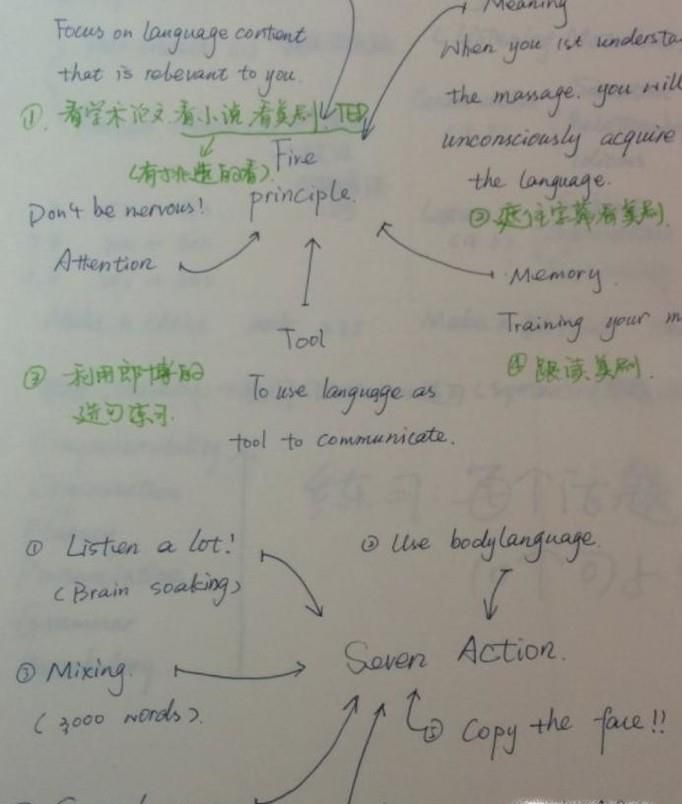 Meaning
Focus on language content
that is relevant to you.
When you 1st understa
the massage. you will
unconsciously acquire
the language.
① 看学术论文.看小说.看美剧.TED
(有挑选的看)
Five
principle.
Don't be nervous!
Attention
Memory.
Training your m
④ 跟读美剧.
Tool
③ 利用郎博的
造句练习.
To use language as
tool to communicate.
① Listen a lot!
(Brain soaking)
② Use body language.
③ Mixing.
(3000 words).
Seven Action.
⑤ Copy the face!!